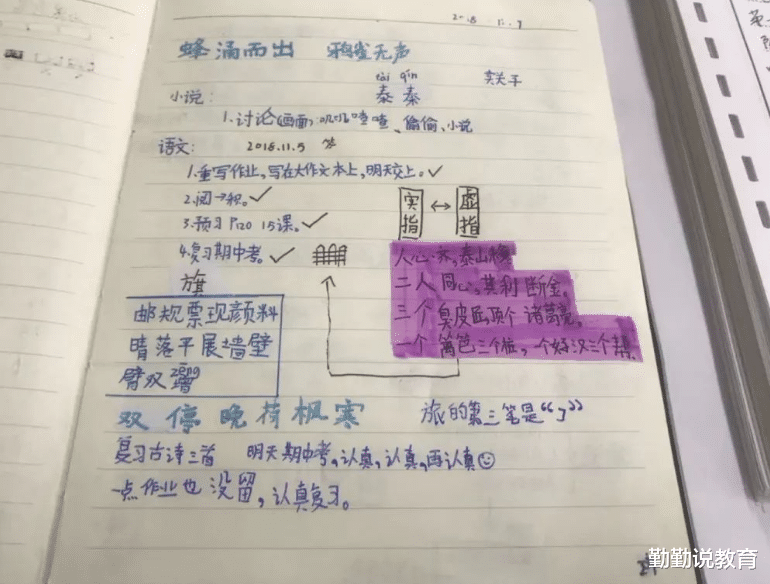 2018 11.7
蜂涌而出 鸦雀无声
tài qín
小说: 泰 秦
1.讨论(画面)叽叽喳喳、偷偷、小说
语文: 2018.11.5
1.重写作业,写在大作文本上,明天交上。✓
2.阅→积。✓
3.预习P120 15课。✓
4.复习期中考。✓
实指 ↔ 虚指
人心齐,泰山移
二人同心,其利断金,
三个臭皮匠,顶个诸葛亮,
一个篱笆三个桩,一个好汉三个帮.
旗
邮规票现颜料
晴落平展墙壁
臂双 zēng 增
双 停 晚 荷 枫 寒
旅的第三笔是“㇆”
复习古诗三首 明天期中考,认真,认真,再认真☺
一点作业也没留,认真复习。
勤勤说教育